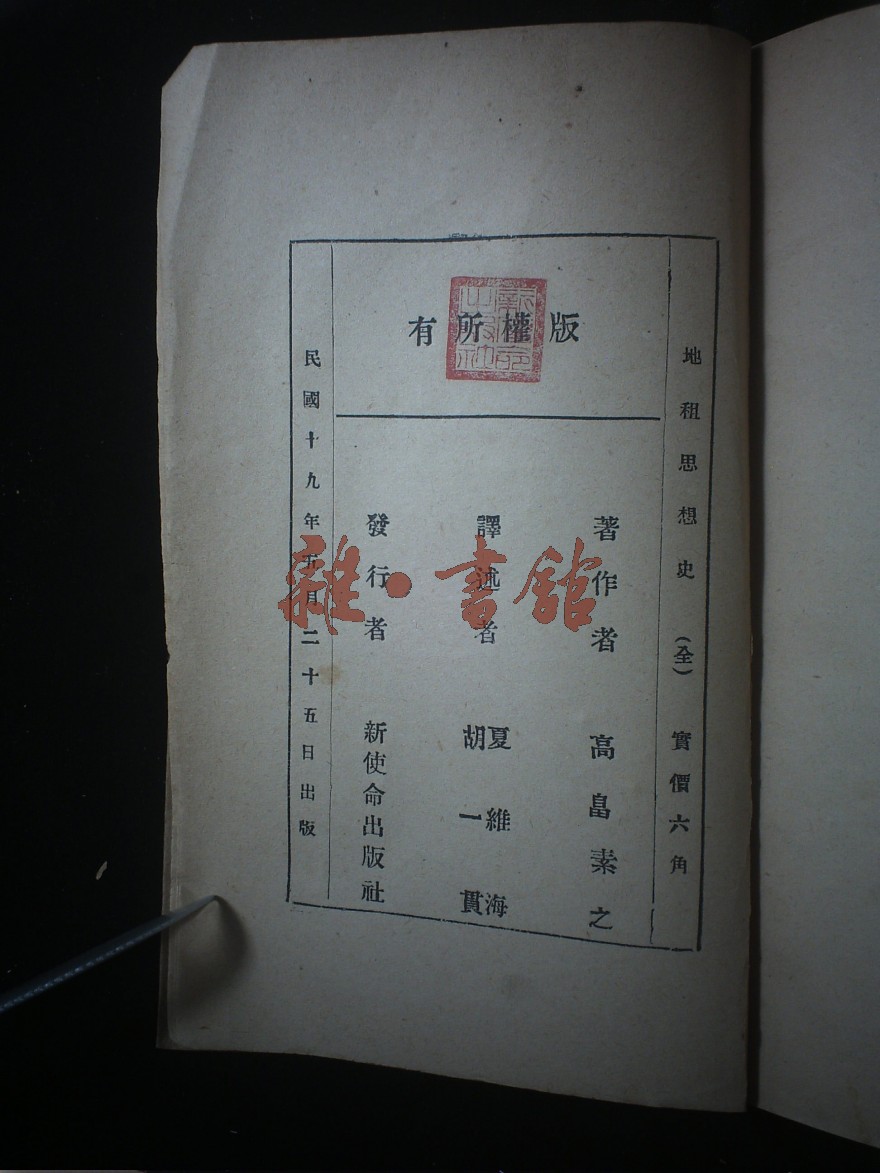 地租思想史 (全) 實價六角
版權所有
著作者 高畠素之
譯述者 夏維海 胡一貫
發行者 新使命出版社
民國十九年五月二十五日出版
新使命出版社
雜·書館